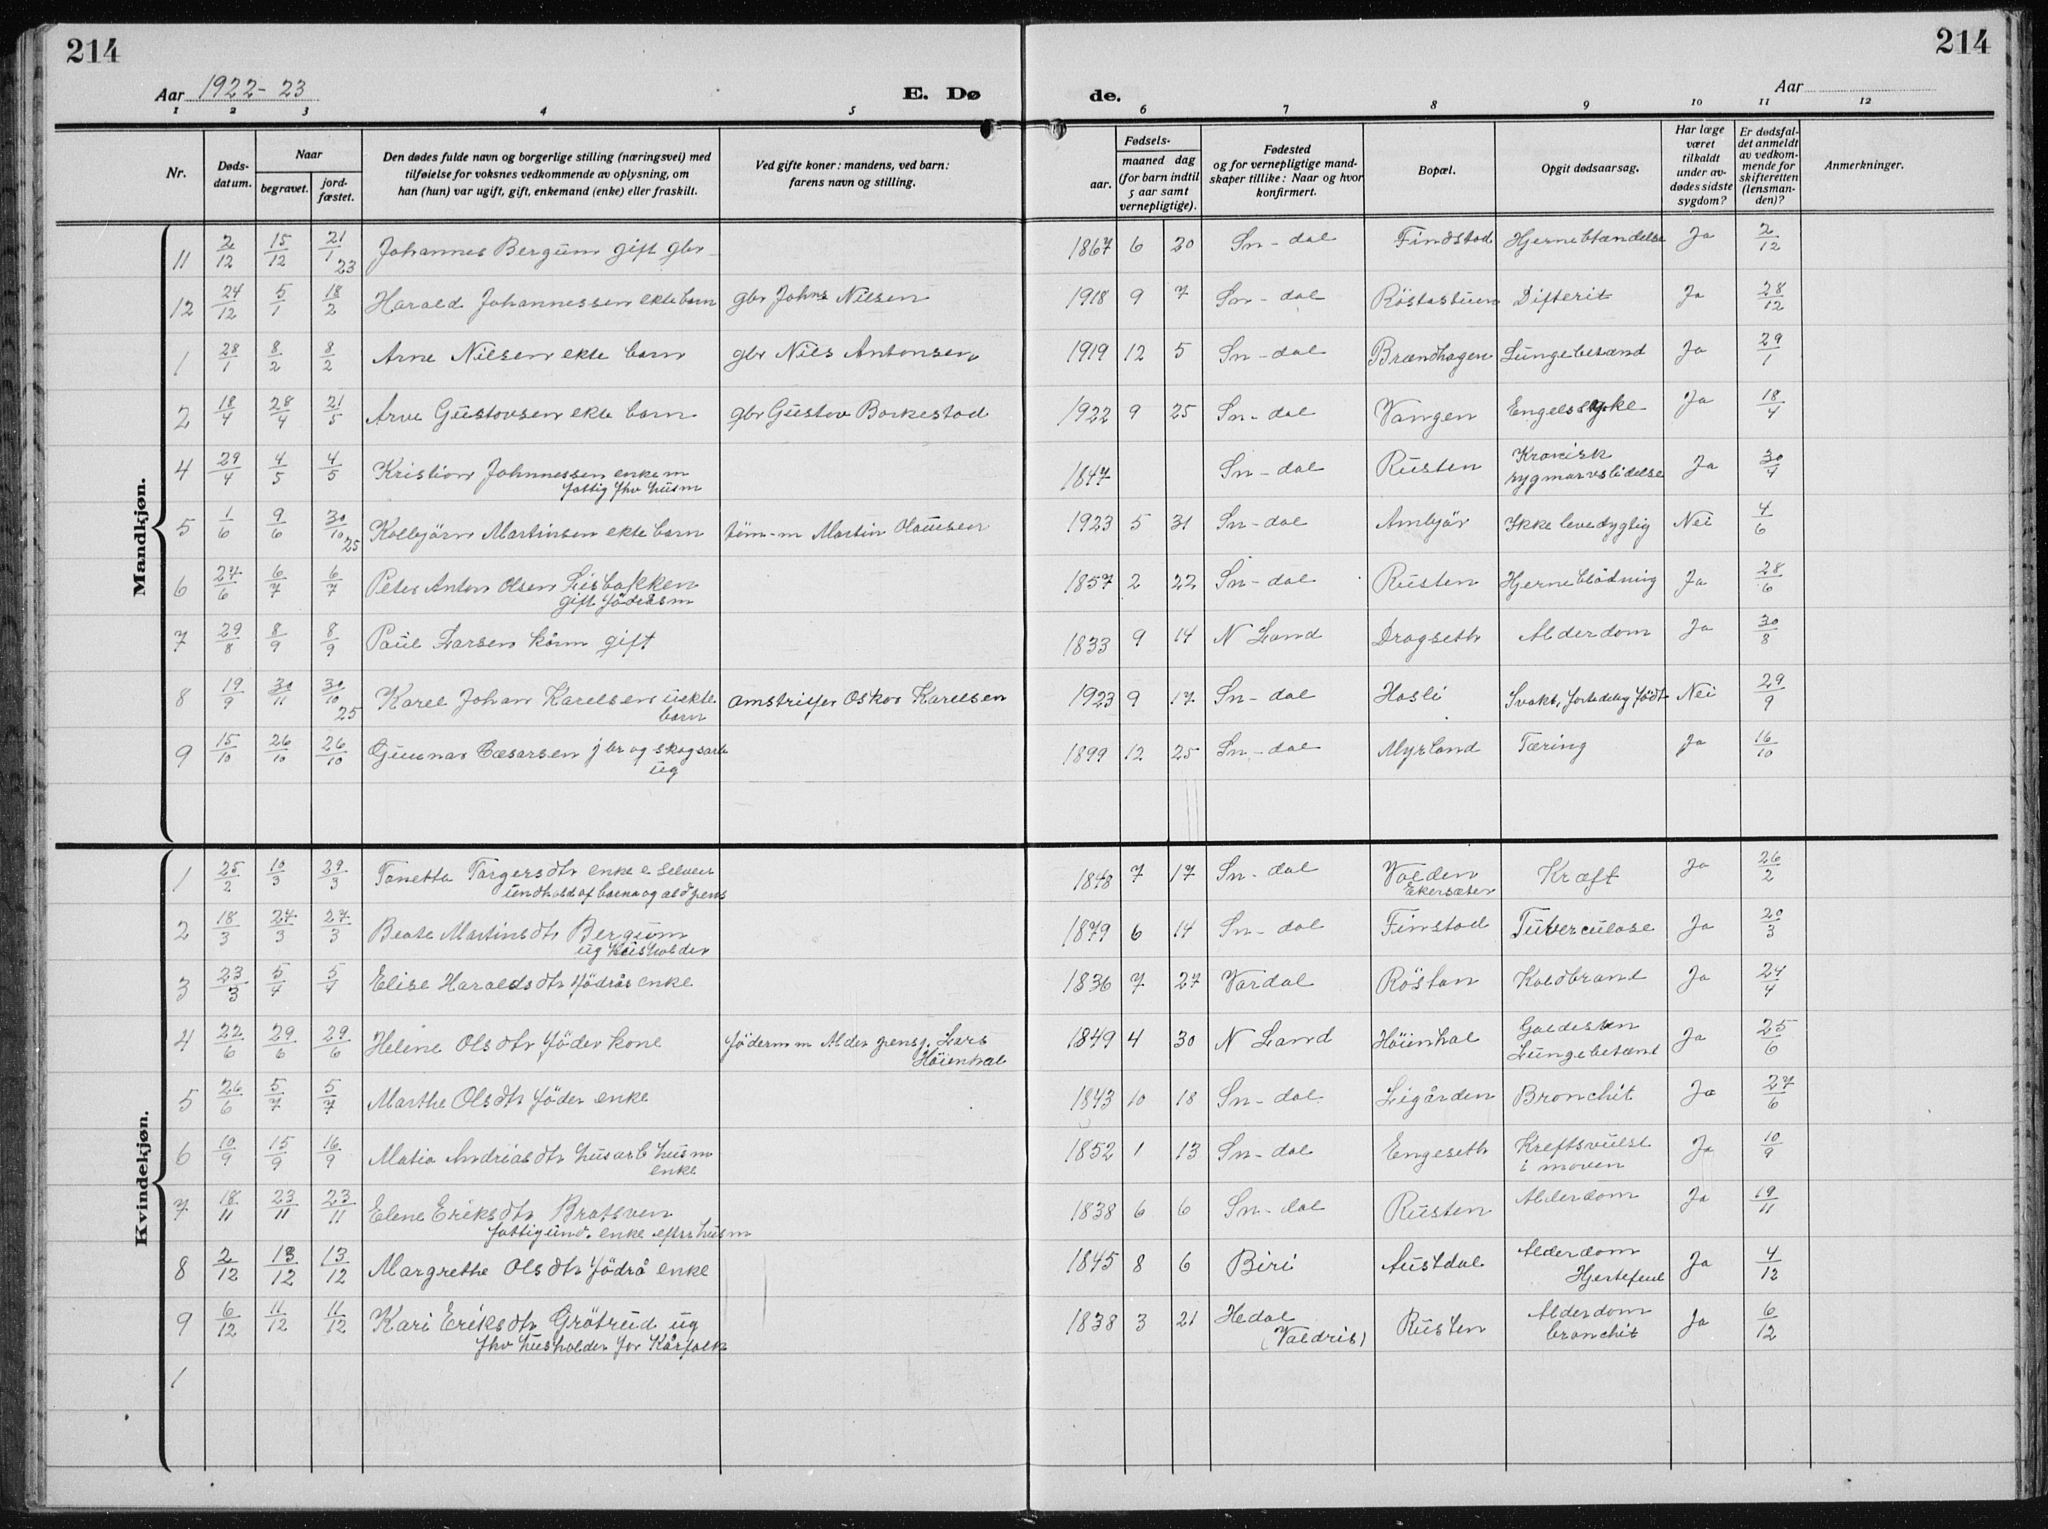 214
214
Aar 1922-23
E. Dø
de.
Aar
1 2 3 4 5 6 7 8 9 10 11 12
Nr.
Døds-
datum.
Naar
begravet.
jord-
fæstet.
Den dødes fulde navn og borgerlige stilling (næringsvei) med
tilføielse for voksnes vedkommende av oplysning, om
han (hun) var ugift, gift, enkemand (enke) eller fraskilt.
Ved gifte koner: mandens, ved barn:
farens navn og stilling.
Fødsels-
aar.
maaned dag
(for barn indtil
5 aar samt
vernepligtige).
Fødested
og for vernepligtige mand-
skaper tillike: Naar og hvor
konfirmert.
Bopæl.
Opgit dødsaarsag.
Har læge
været
tilkaldt
under av-
dødes sidste
sygdom?
Er dødsfal-
det anmeldt
av vedkom-
mende for
skifteretten
(lensman-
den)?
Anmerkninger.
Mandkjøn.
11 2/12 15/12 21/1 23 Johannes Bergum gift gbr 1867 6 20 Sn-dal Findstad Hjernebtændelse Ja 2/12
12 24/12 5/1 18/2 Harald Johannessen ekte barn gbr Johns Nilsen 1918 9 7 Sn-dal Röstastuen Difterit Ja 28/12
1 28/1 8/2 8/2 Arne Nilsen ekte barn gbr Nils Antonsen 1919 12 5 Sn-dal Brændhagen Lungebetænd Ja 29/1
2 18/4 28/4 21/5 Arve Gustavsen ekte barn gbr Gustav Borkestad 1922 9 25 Sn-dal Vangen Engelssyke Ja 18/4
4 29/4 4/5 4/5 Kristian Johannessen enkem 1847 Sn-dal Rusten Kronisk
fattig fhv husm rygmarvslidelse Ja 30/4
5 1/6 9/6 30/10 25 Kolbjörn Martinsen ekte barn töm-m Martin Olausen 1923 5 31 Sn-dal Ambjör Ikke levedygtig Nei 4/6
6 27/6 6/7 6/7 Peter Anton Olsen Lisbakken 1857 2 22 Sn-dal Rusten Hjerneblödning Ja 28/6
gift föderåsm
7 29/8 8/9 8/9 Paul Larsen kårm gift 1833 9 14 N Land Dragseth Alderdom Ja 30/8
8 19/9 30/11 30/10 25 Karel Johan Karelsen uekte amstrifer Oskar Karelsen 1923 9 17 Sn-dal Hasli Svakt, fortidlig födt Nei 29/9
barn
9 15/10 26/10 26/10 Gunnar Cæsarsen jbr og skogsarb 1899 12 25 Sn-dal Myrland Tæring Ja 16/10
ug
Kvindekjøn.
1 25/2 10/3 29/3 Tonetta Torgersdtr enke e selveier 1848 7 17 Sn-dal Volden Kræft Ja 26/2
undhold af barna og aldpens Ekersæter
2 18/3 27/3 27/3 Beate Martinsdtr Bergum 1879 6 14 Sn-dal Finstad Tuberculose Ja 20/3
ug husholder
3 23/3 5/4 5/4 Elise Haraldsdtr födrås enke 1836 7 27 Vardal Röstan Koldbrand Ja 24/4
4 22/6 29/6 29/6 Helene Olsdtr föder kone föderm m Alder pensj. Lars 1849 4 30 N Land Höienhal Galdesten Ja 25/6
Höienhal Lungebetænd
5 26/6 5/7 5/7 Marthe Olsdtr föder enke 1843 10 18 Sn-dal Ligården Bronchit Ja 27/6
6 10/9 15/9 16/9 Matia Andriasdtr husarb husm 1852 1 13 Sn-dal Engeseth Kreftsvulst Ja 10/9
enke i maven
7 18/11 23/11 23/11 Elene Eriksdtr Bratsven 1838 6 6 Sn-dal Rusten Alderdom Ja 19/11
fattigund. enke efter husm
8 2/12 13/12 13/12 Margrethe Olsdtr födrå enke 1845 8 6 Biri Austdal Alderdom Ja 4/12
Hjertefeil
9 6/12 11/12 11/12 Kari Eriksdtr Grötrud ug 1838 3 21 Hedal Rusten Alderdom Ja 6/12
fhv husholder for Kårfolk (Valdris) bronchit
1